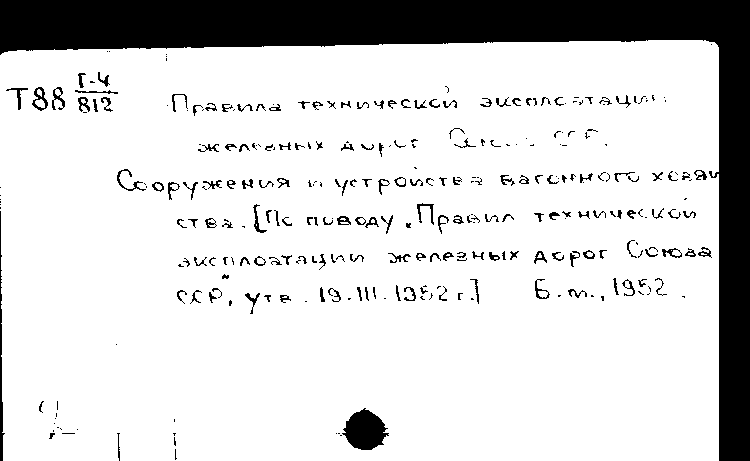 Т88 Г-4/812
Правила технической эксплоатации
железных дорог Союза ССР.
Сооружения и устройства вагонного хозяй
ства. [По поводу „Правил технической
эксплоатации железных дорог Союза
ССР", утв. 19.III.1952 г.] Б.м., 1952.